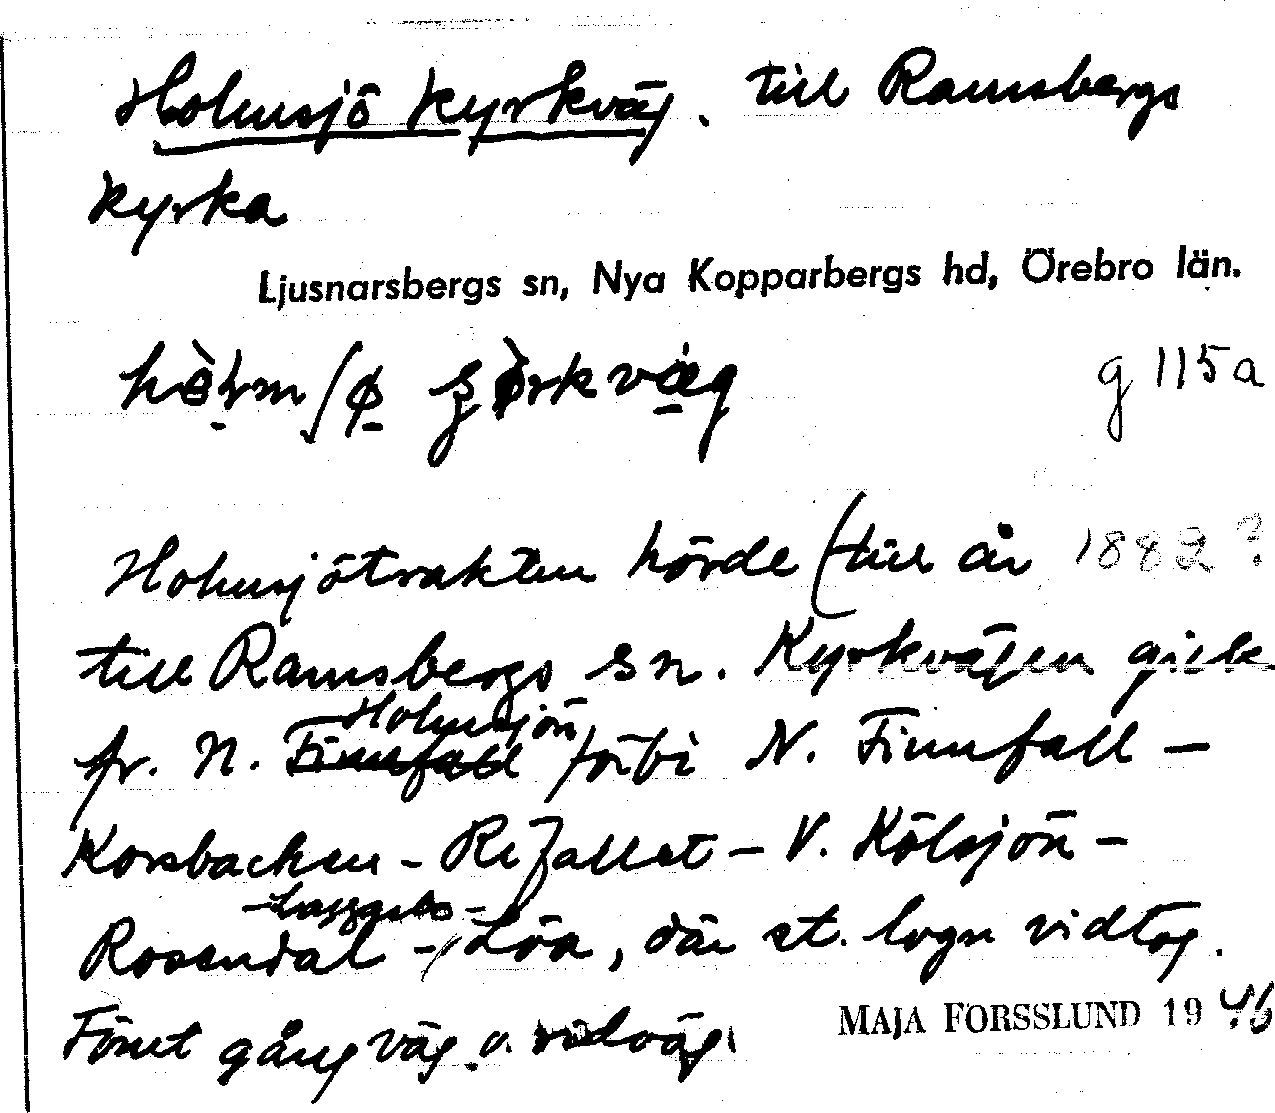 Holmsjö kyrkväg. till Ramsbergs
kyrka
Ljusnarsbergs sn, Nya Kopparbergs hd, Örebro län.
g 115a
Holmsjötrakten hörde (till år 1882?
till Ramsbergs sn. Kyrkvägen gick
Holmsjön
fr. N. Finnfall förbi N. Finnfall –
Korsbacken – Rifallet – V. Kölsjön –
Rosendal – Löa, där st. logn vidtog.
Förut gångväg o. ridväg.
MAJA FORSSLUND 1946